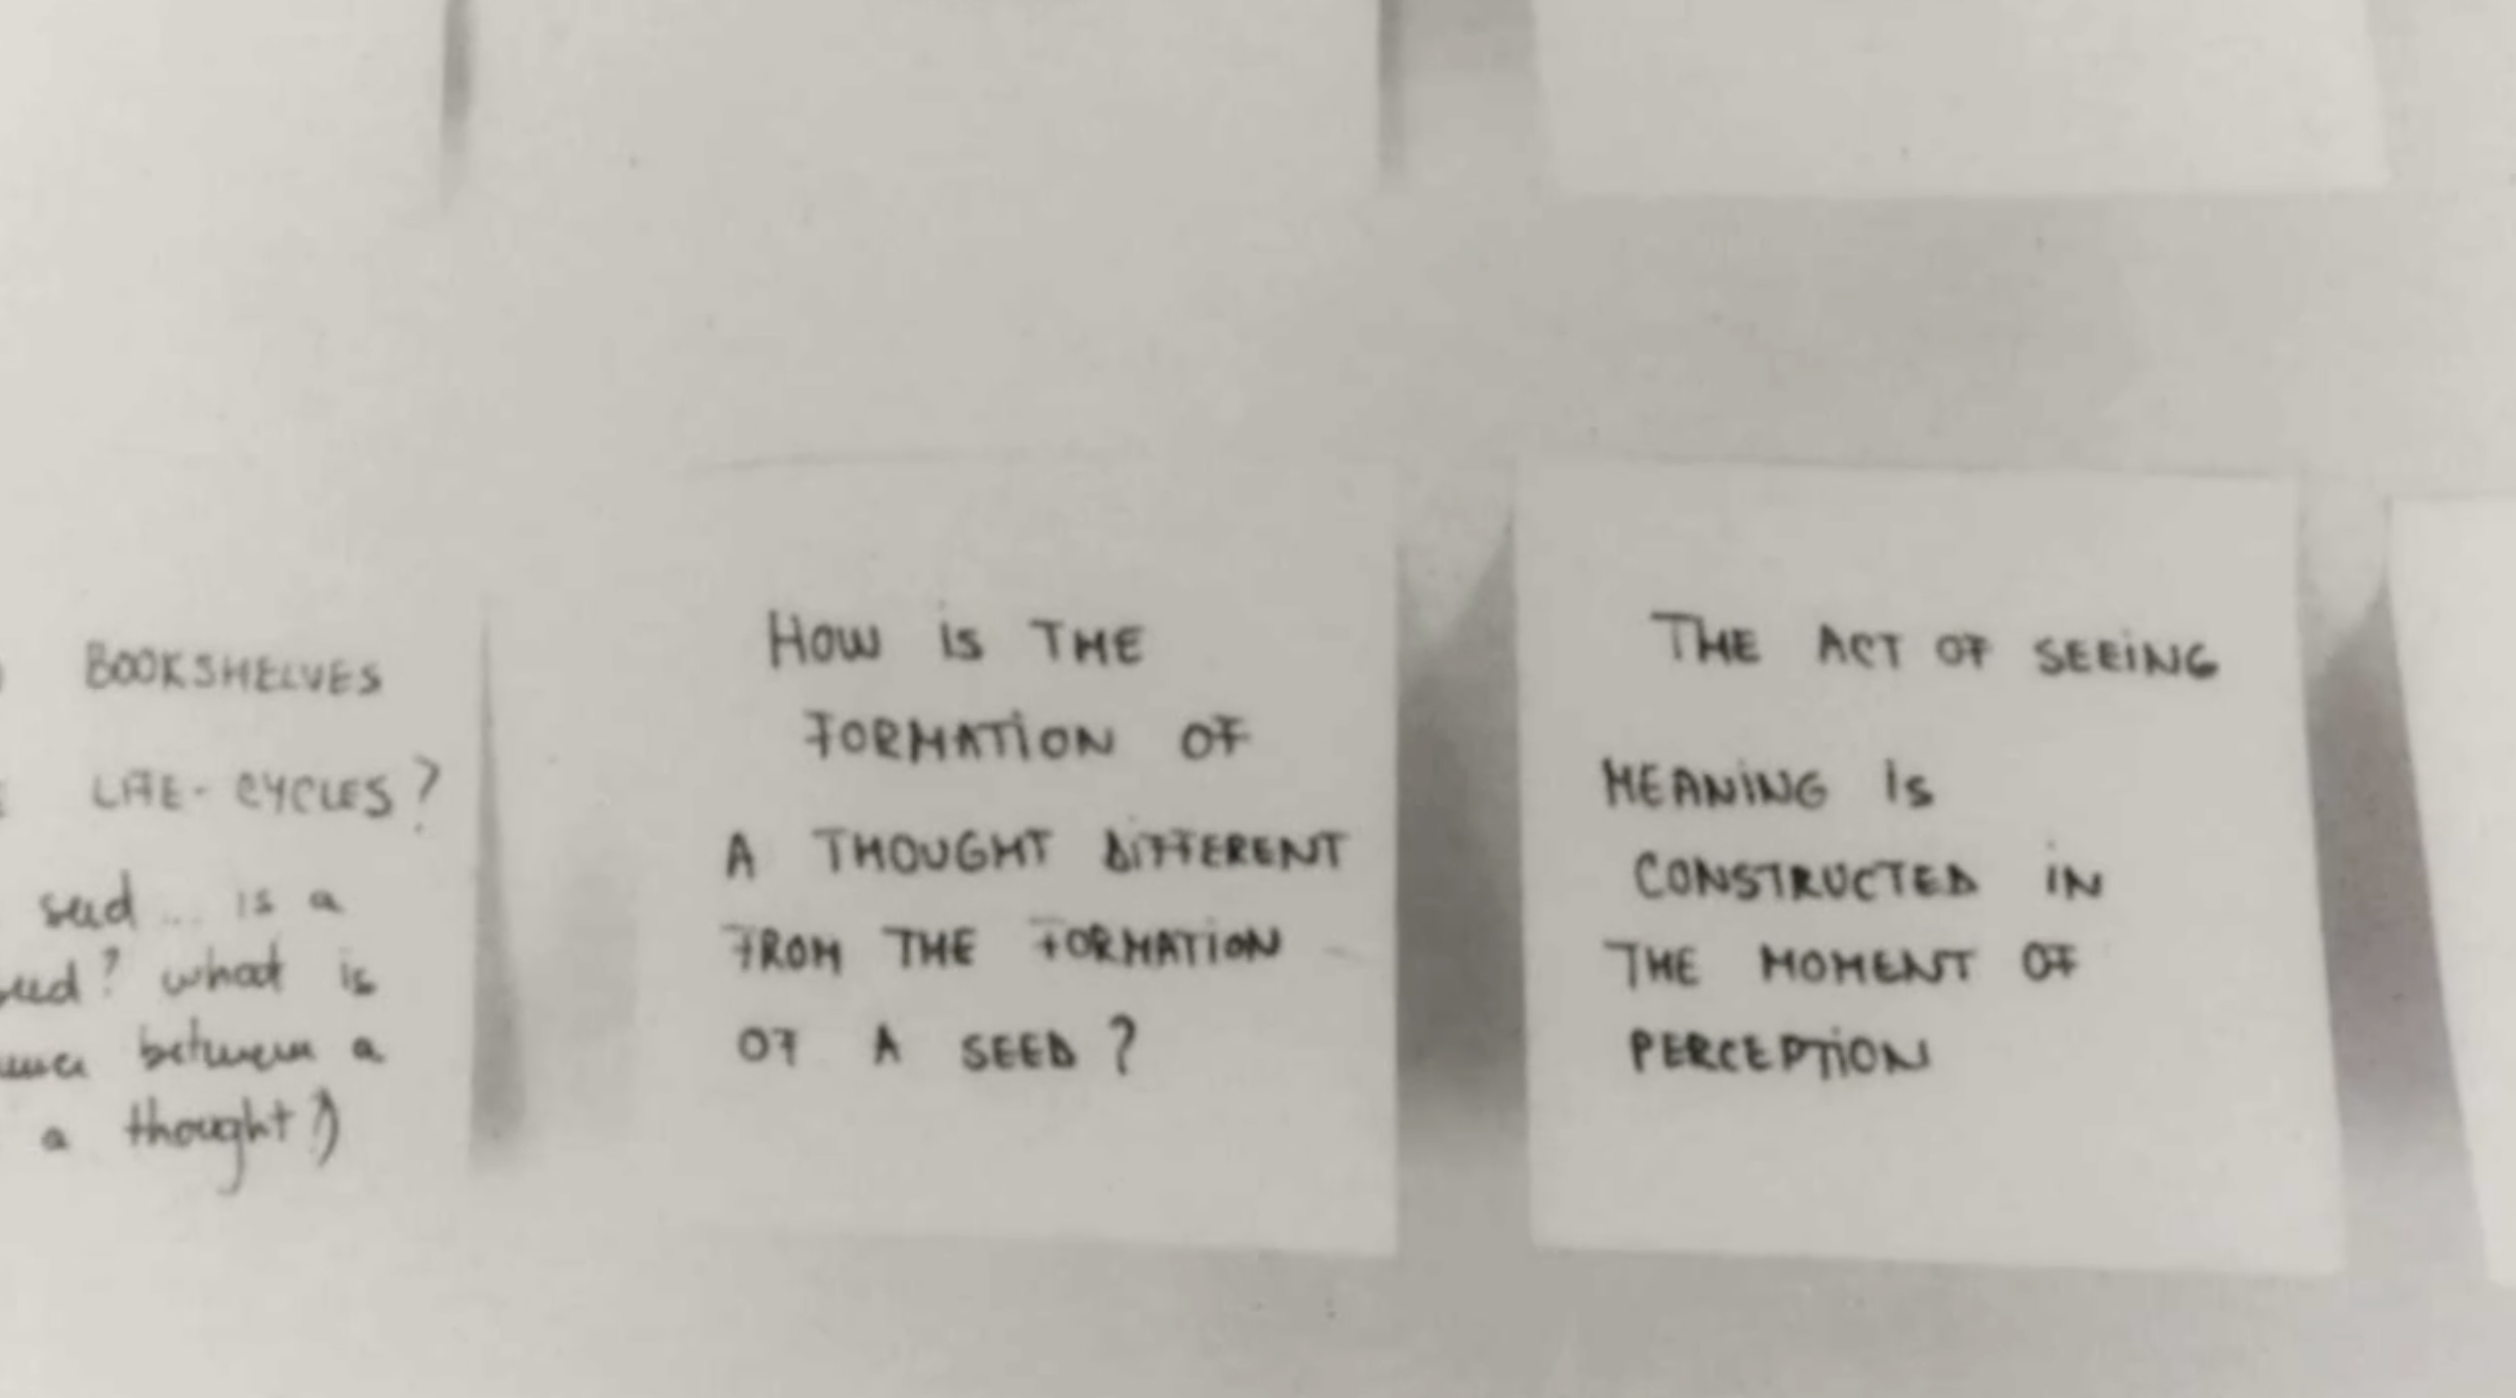 BOOKSHELVES
LIFE-CYCLES?
seed... is a
seed? what is
between a
a thought?)
HOW IS THE
FORMATION OF
A THOUGHT DIFFERENT
FROM THE FORMATION
OF A SEED?
THE ACT OF SEEING
MEANING IS
CONSTRUCTED IN
THE MOMENT OF
PERCEPTION